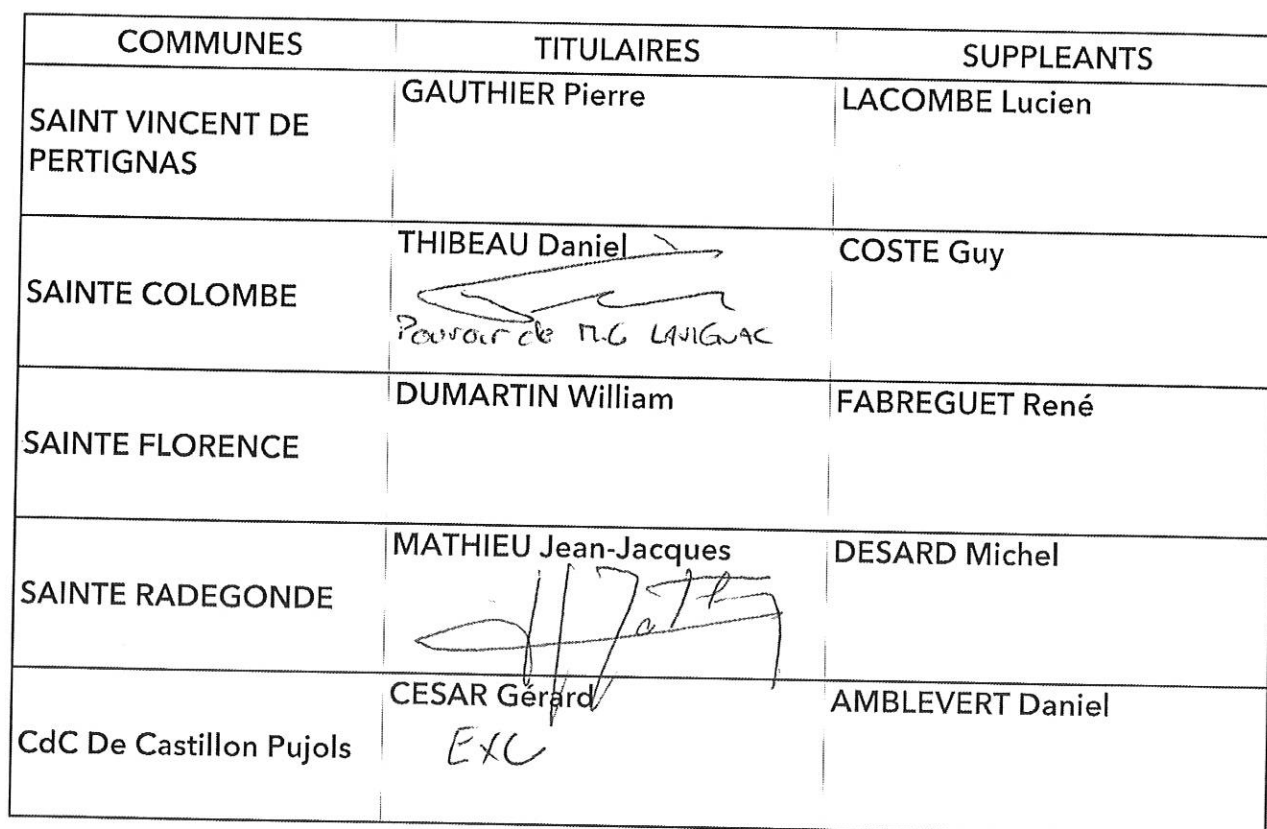 COMMUNES TITULAIRES SUPPLEANTS
SAINT VINCENT DE
PERTIGNAS
GAUTHIER Pierre
LACOMBE Lucien
SAINTE COLOMBE
THIBEAU Daniel
Pouvoir de M.G LAVIGNAC
COSTE Guy
SAINTE FLORENCE
DUMARTIN William
FABREGUET René
SAINTE RADEGONDE
MATHIEU Jean-Jacques
DESARD Michel
CdC De Castillon Pujols
CESAR Gérard
EXC
AMBLEVERT Daniel